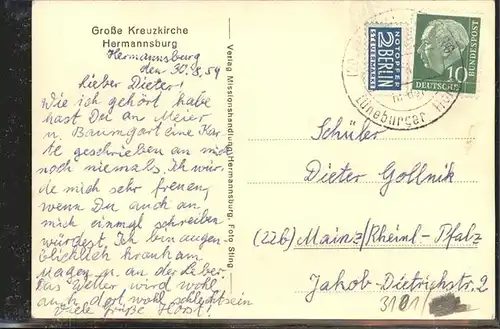 Große Kreuzkirche
Hermannsburg
Hermannsburg
den 30.8.54
Lieber Dieter!
Wie ich gehört habe
hast Du an Meier
u. Baumgart eine Kar-
te geschrieben an mich
noch niemals. Ich wür-
de mich sehr freuen,
wenn Du auch an
mich einmal schreiben
würdest. Ich bin augen-
blicklich krank am
Magen u. an der Leber.
Das Wetter wird wohl
auch dort wohl schlecht sein
Viele Grüße Horst!
Verlag Missionshandlung Hermannsburg. Foto Sting
NOTOPFER
2 BERLIN
STEUERMARKE
DEUTSCHE BUNDESPOST
10
Lüneburger
Schüler
Dieter Gollnik
(22b) Mainz/Rheinl-Pfalz
Jakob-Dietrichstr. 2
3101/